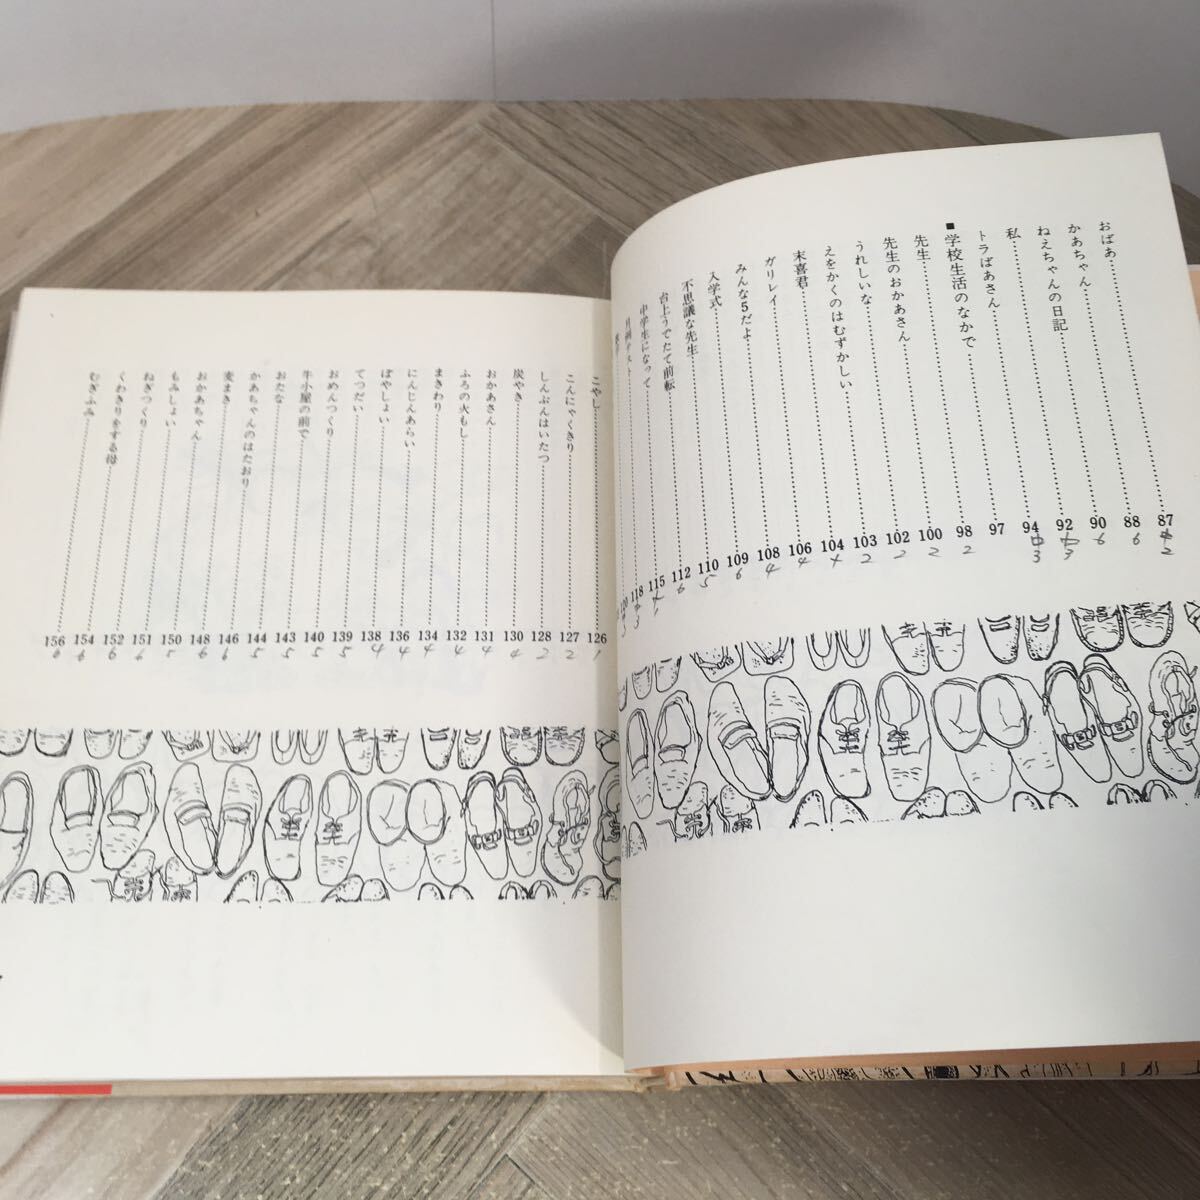 おばあ……87 中2
かあちゃん……88 6
ねえちゃんの日記……90 6
私……92 中3
トラばあさん……94 中3
■学校生活のなかで……97
先生……98 2
先生のおかあさん……100 2
うれしいな……102 2
えをかくのはむずかしい……103 2
末喜君……104 4
ガリレイ……106 4
みんな5だよ……108 4
入学式……109 6
不思議な先生……110 5
台上うでたて前転……112 6
中学生になって……115 中1
月例テスト……118 中3
120 中3
こやし……126 1
こんにゃくきり……127 2
しんぶんはいたつ……128 2
炭やき……130 4
おかあさん……131 4
ふろの火もし……132 4
まきわり……134 4
にんじんあらい……136 4
ぼやしょい……138 4
てつだい……139 5
おめんつくり……140 5
牛小屋の前で……143 5
おたな……144 5
かあちゃんのはたおり……146 6
麦まき……148 6
おかあちゃん……150 5
もみしょい……151 6
ねぎつくり……152 6
くわきりをする母……154 6
むぎふみ……156 6